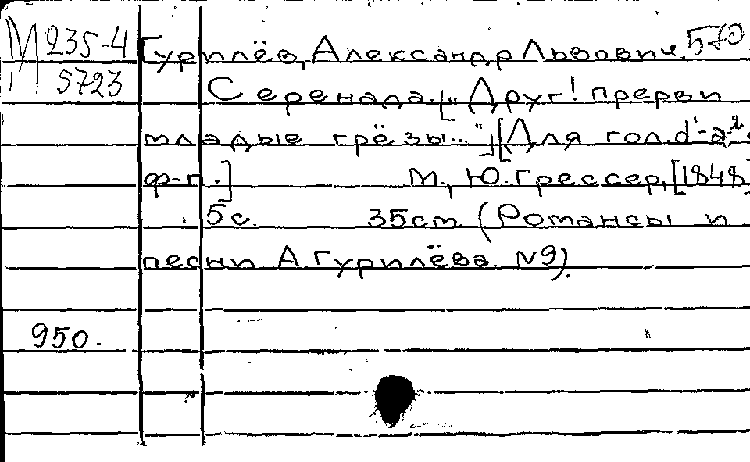 М 235-4
5723
Гурилёв, Александр Львович. 570
Серенада. [„Друг! прерви
младые грёзы..."] [Для гол. d¹-a² с
ф-п.] М., Ю. Грессер, [1848]
5с. 35см. (Романсы и
песни А. Гурилёва №9).
950.